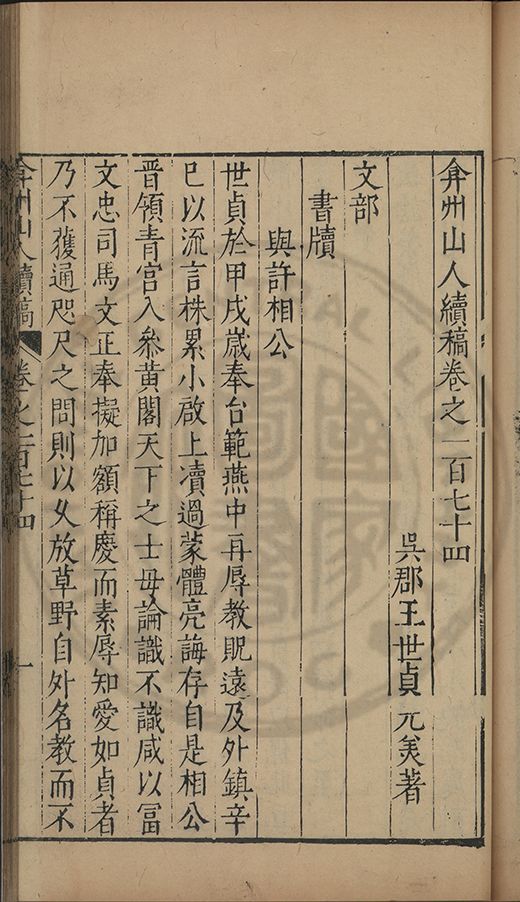 弇州山人續稿卷之一百七十四
吳郡王世貞元美著
文部
書牘
與許相公
世貞於甲戌歲奉台範燕中再辱教貺遠及外鎮辛
巳以流言株累小啟上凟過蒙體亮誨存自是相公
晋領青宮入叅黃閣天下之士毋論識不識咸以冨
文忠司馬文正奉擬加額稱慶而素辱知愛如貞者
乃不獲通咫尺之問則以久放草野自外名教而不
弇州山人續稿 卷之一百七十四 一